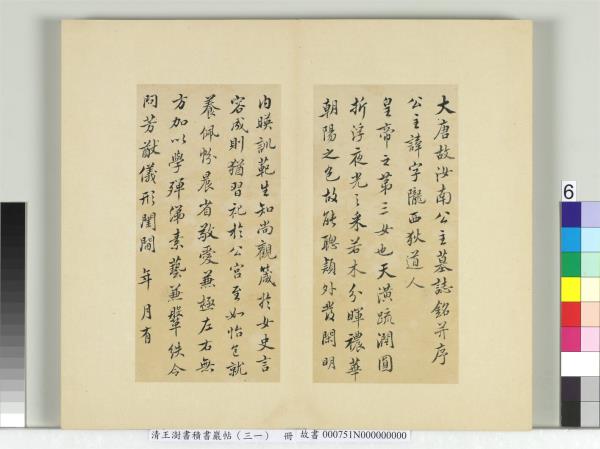 大唐故汝南公主墓誌銘并序
公主諱字隴西狄道人
皇帝之第三女也天潢疏潤圓
折浮夜光之采若木分暉穠華
朝陽之色故能聰穎外發閑明
內暎訓範生知尚觀箴於女史言
容成則猶習祀於公宮至如怡色就
養佩帉晨省敬愛兼極左右無
方加以學殫綈素藝兼鞶佚令
問芳猷儀形閨閫 年 月有
6
清王澍書積書巖帖(三一) 冊 故書 000751N000000000